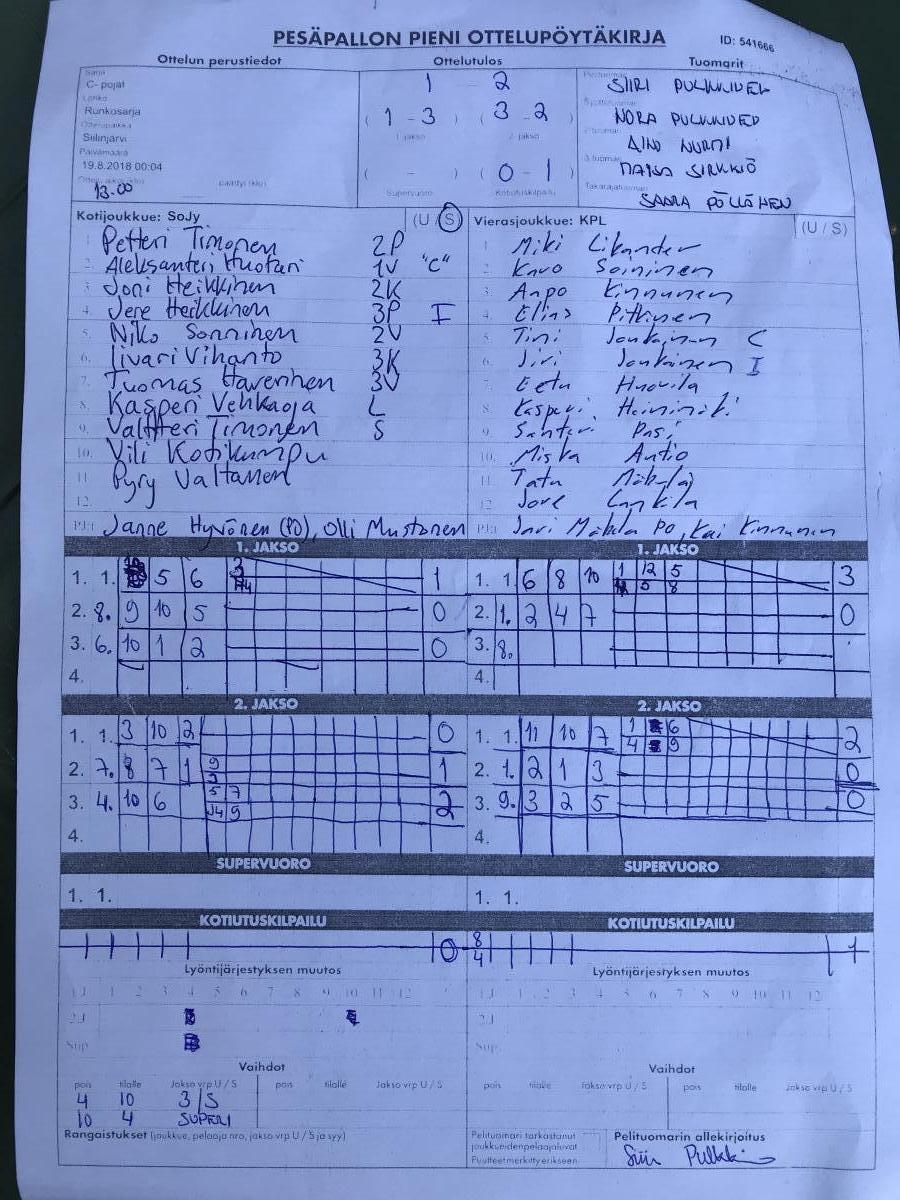 PESÄPALLON PIENI OTTELUPÖYTÄKIRJA
ID: 541666
Ottelun perustiedot
Ottelutulos
Tuomarit
Sarja
C- pojat
Lohko
Runkosarja
Ottelupaikka
Siilinjärvi
Päivämäärä
19.8.2018 00:04
13.00
päättyi (klo)
1 - 2
( 1 - 3 ) ( 3 - 2 )
1. jakso 2. jakso
( - ) ( 0 - 1 )
Supervuoro Kotiutuskilpailu
SIIRI PULKKINEN
NORA PULKKINEN
AINO NURMI
MAIJA SIRKKIÖ
Takarajatuomari
SAARA PÖLLÄNEN
Kotijoukkue: SoJy (U / S)
1. Petteri Timonen 2P
2. Aleksanteri Huotari 1V "C"
3. Joni Heikkinen 2K
4. Jere Heikkinen 3P I
5. Niko Sonninen 2V
6. Iivari Vihanto 3K
7. Tuomas Haverinen 3V
8. Kasperi Vehkaoja L
9. Valtteri Timonen S
10. Vili Kotikumpu
11. Pyry Valtanen
12.
PJ: Janne Hyvönen (PO), Olli Mustonen
Vierasjoukkue: KPL (U / S)
1. Miki Likander
2. Karo Soininen
3. Anpo Kinnunen
4. Elias Pitkänen
5. Timi Jonkainen C
6. Jiri Jonkainen I
7. Eetu Huovila
8. Kasperi Heinimäki
9. Santeri Pasi
10. Miska Autio
11. Tatu Mäkelä
12. Jore Lankila
PJ: Jari Mäkelä PO, Kai Kinnunen
1. JAKSO
1. 1. 5 6 1
2. 8. 9 10 5 0
3. 6. 10 1 2 0
4.
1. JAKSO
1. 1. 6 8 10 1 12 5 3
5 8
2. 1. 2 4 7 0
3. 8.
4.
2. JAKSO
1. 1. 3 10 2 0
2. 7. 8 7 1 9 1
3. 4. 10 6 5 7 2
J4 9
4.
2. JAKSO
1. 1. 11 10 7 1 6 2
4 9
2. 1. 2 1 3 0
3. 9. 3 2 5 0
4.
SUPERVUORO
1. 1.
SUPERVUORO
1. 1.
KOTIUTUSKILPAILU
0
KOTIUTUSKILPAILU
8
4
1
Lyöntijärjestyksen muutos
1J 1 2 3 4 5 6 7 8 9 10 11 12
2J
Sup.
Lyöntijärjestyksen muutos
1J 1 2 3 4 5 6 7 8 9 10 11 12
2J
Sup.
Vaihdot
pois tilalle Jakso vrp U / S pois tilalle Jakso vrp U / S
4 10 3/S
10 4 SUPERI
Vaihdot
pois tilalle Jakso vrp U / S pois tilalle Jakso vrp U / S
Rangaistukset (joukkue, pelaaja nro, jakso vrp U / S ja syy)
Pelituomari tarkastanut
joukkueiden pelaajaluvat
Puutteet merkitty erikseen.
Pelituomarin allekirjoitus
Siiri Pulkkinen